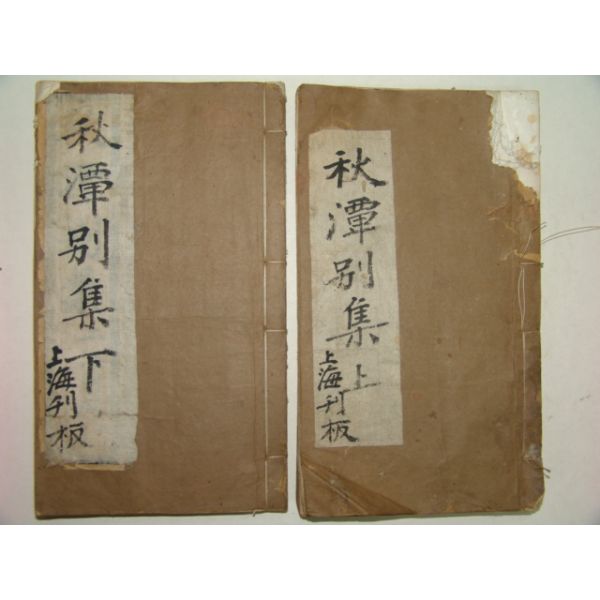 秋潭別集下
上海刊板
秋潭別集上
上海刊板